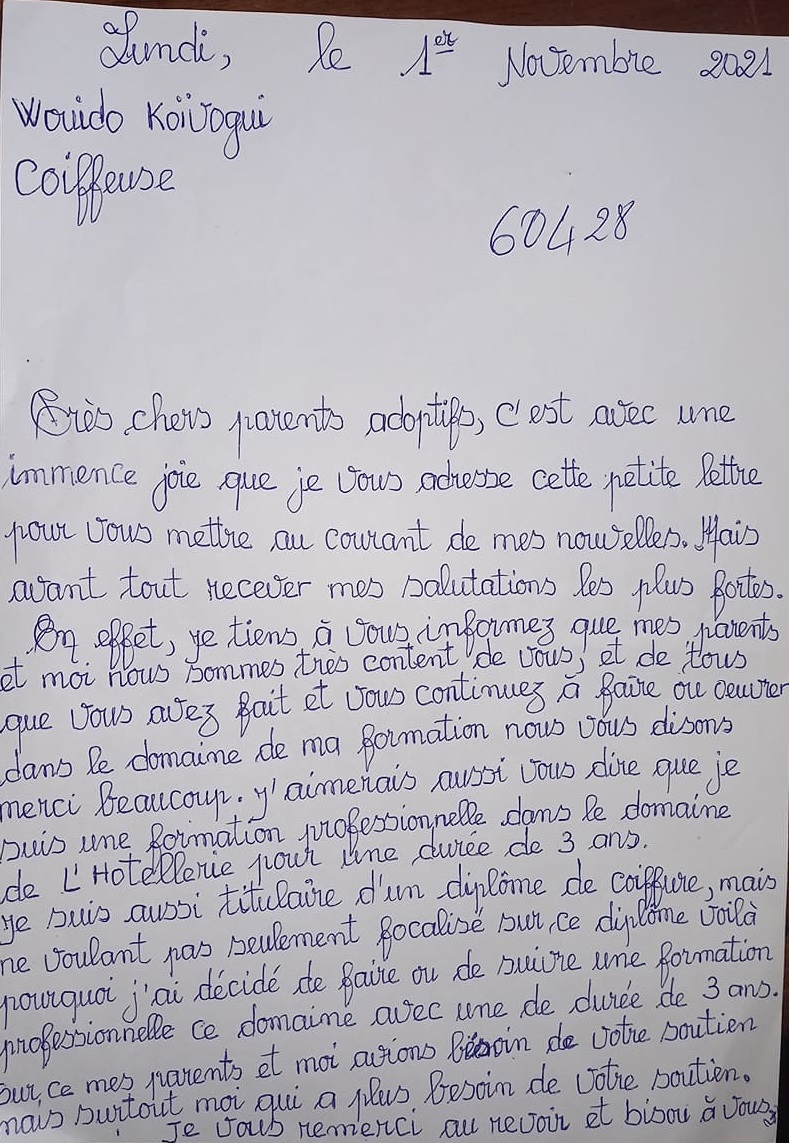 Lundi, le 1er Novembre 2021
Wouido Koïvogui
Coiffeuse
60428
Très chers parents adoptifs, c'est avec une
immence joie que je vous adresse cette petite lettre
pour vous mettre au courant de mes nouvelles. Mais
avant tout recever mes salutations les plus fortes.
En effet, je tiens à vous informez que mes parents
et moi nous sommes très content de vous, et de tous
que vous avez fait et vous continuez à faire ou oeuvrer
dans le domaine de ma formation nous vous disons
merci beaucoup. j'aimerais aussi vous dire que je
suis une formation professionnelle dans le domaine
de L'Hotellerie pour une durée de 3 ans.
je suis aussi titulaire d'un diplôme de coiffure, mais
ne voulant pas seulement focalisé sur ce diplôme voilà
pourquoi j'ai décidé de faire ou de suivre une formation
professionnelle ce domaine avec une de durée de 3 ans.
Sur, ce mes parents et moi avions besoin de votre soutien
mais surtout moi qui a plus besoin de votre soutien.
Je vous remerci au revoir et bisou à vous